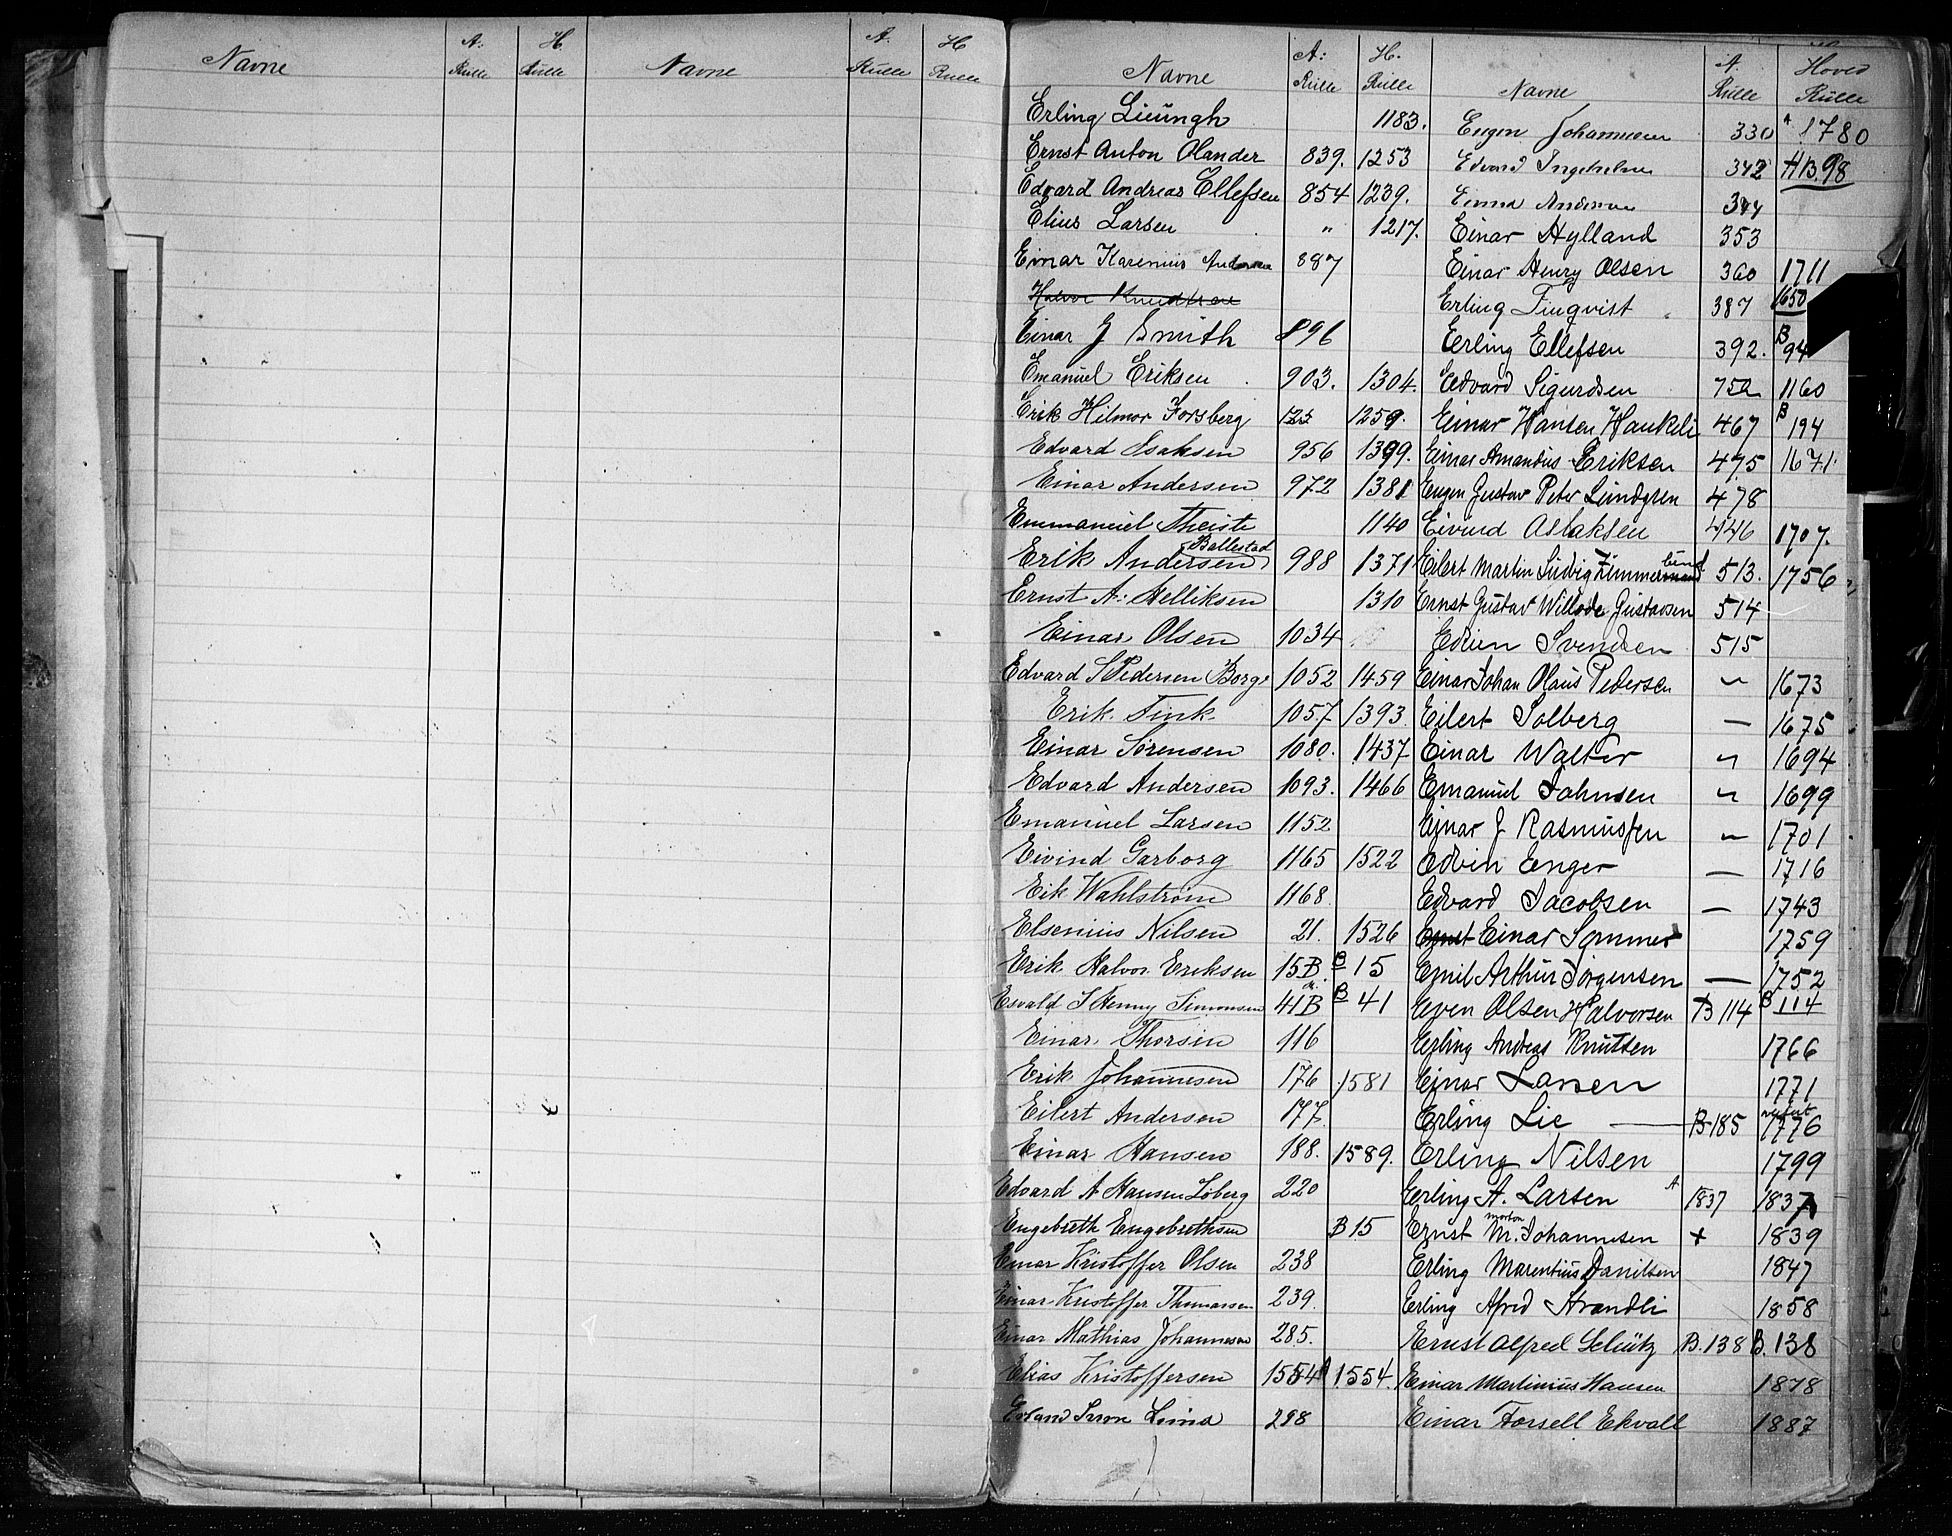 Navne A: Rulle H. Rulle Navne A. Rulle H Rulle
Navne A: Rulle H. Rulle Navne A. Rulle Hoved Rulle
Erling Lieungh 1183.
Ernst Anton Olander 839. 1253
Edvard Andreas Ellefsen 854 1239.
Elius Larsen " 1217.
Einar Karenius Andersen 887
Halvor Knudtsen
Einar J Smith 896
Emanuel Eriksen 903. 1304.
Erik Hilmar Forsberg 1259.
Edvard Isaksen 956 1399.
Einar Andersen 972 1381
Emmanuel Theiste 1140
Erik Andersen Ballestad 988 1371
Ernst A: Helliksen 1310
Einar Olsen 1034
Edvard S Pedersen Borge 1052 1459
Erik Fink 1057 1393
Einar Sørensen 1080. 1437
Edvard Andersen 1093. 1466
Emanuel Larsen 1152
Eivind Garborg 1165 1522
Eik Wahlstrøm 1168
Elsenius Nilsen 21. 1526
Erik Halvor Eriksen 15B B 15
Esvald S Henny Simonsen 41B B 41
Einar Thorsen 116
Erik Johannesen 176 1581
Eilert Andersen 177.
Einar Hansen 188. 1589.
Edvard A Hansen Løberg 220
Engebreth Engebrethsen B 15
Einar Kristoffer Olsen 238
Einar Kristoffer Thomassen 239.
Einar Mathias Johannesen 285.
Elias Kristoffersen 1554 1554.
Lima 298
Eugen Johannesen 330 A 1780
Edvard 342 HB.98
Andersen 344
Einar Hylland 353
Einar Henry Olsen 360 1711
Erling Finqvist 387 1650
Erling Ellefsen 392. B 94
Edvard Sigurdsen 752 1160
Einar Hansen Haukeli 467 B 194
Einar Amandus Eriksen 475 1671.
Eugen Gustav Peter Lundgren 478
Eivind Aslaksen 446 1707.
Eilert Martin Ludvig Zimmermand lund 513. 1756
Ernst Gustav Gustavsen 514
Edvin Svendsen 515
Einar Johan Olaus Pedersen " 1673
Eilert Solberg — 1675
Einar Walter " 1694
Emanuel Johnsen " 1699
Einar J Rasmussen " 1701
Edvin Enger — 1716
Edvard Jacobsen — 1743
Ernst Einar Sommer 1759
Emil Arthur Jørgensen — 1752
Even Olsen Halvorsen B 114 B 114
Erling Andreas Knutsen 1766
Einar Larsen 1771
Erling Lie B 185 1776
Erling Nilsen 1799
Erling A. Larsen A 1837 1837
Ernst morton M. Johannesen + 1839
Erling Marentius Danilsen 1847
Erling Alfred Strandli 1858
Ernst Alfred Schütz B. 138 B. 138
Einar Martinius Hansen 1878
Einar Forsell Ekvall 1887